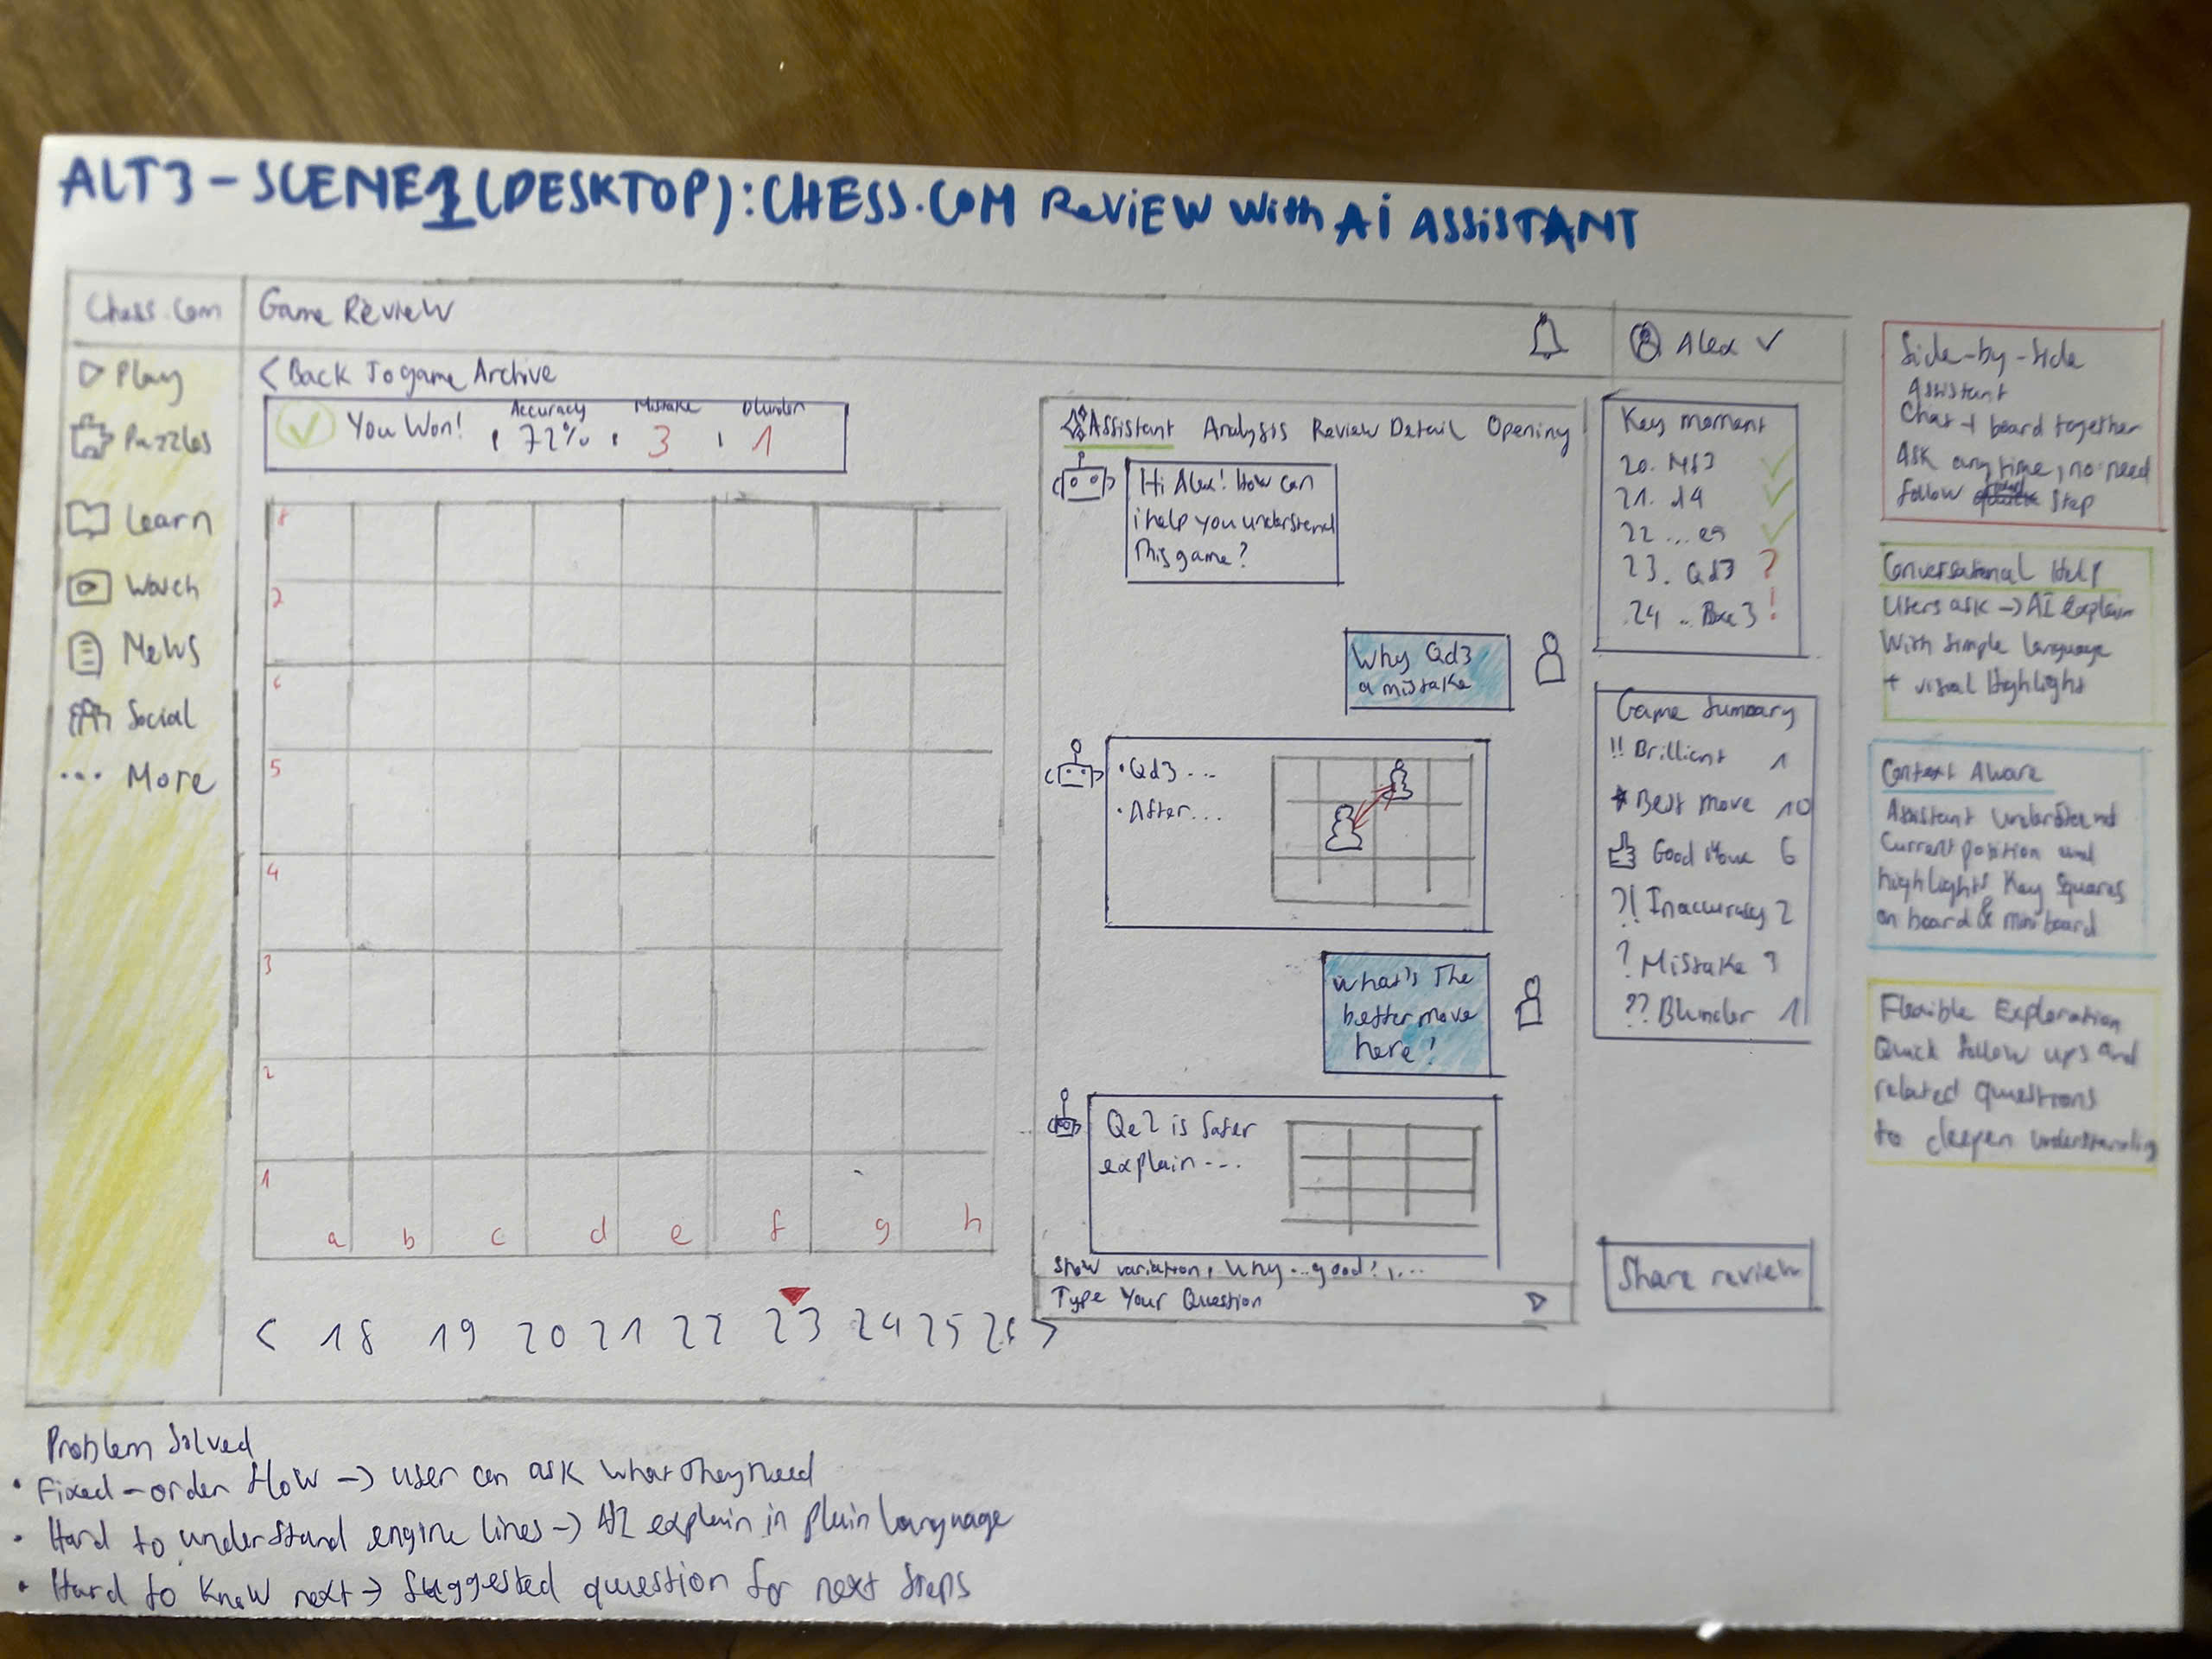 ALT3 - SCENE1 (DESKTOP): CHESS.COM REVIEW WITH AI ASSISTANT
Chess.com
Game Review
Alex
Play
Puzzles
Learn
Watch
News
Social
... More
< Back To game Archive
You Won!
Accuracy
72%
Mistake
3
blunder
1
2
6
5
4
3
2
1
a b c d e f g h
< 18 19 20 21 22 23 24 25 26 >
Assistant Analysis Review Detail Opening
Hi Alex! How can
i help you understand
this game?
Why Qd3
a mistake
• Qd3 ...
• After...
What's The
better move
here?
Qe2 is Safer
explain ...
Show variation, Why...good?, ...
Type Your Question
Key moment
20. Nf3
21. d4
22 ... e5
23. Qd3 ?
24 .. !
Game Sumary
!! Brilliant 1
Best move 10
Good Move 6
?! Inaccuracy 2
? Mistake 3
?? Blunder 1
Share review
Side-by-Side
Assistant
Chat + board together
Ask anytime, no need
follow Step
Conversational Help
Users ask → AI explain
With Simple language
+ visual Highlight
Context Aware
Assistant Understand
Current position and
highlights Key Squares
on board & mini board
Flexible Exploration
Quick follow ups and
related questions
to deepen understanding
Problem Solved
• Fixed-order flow → user can ask what they need
• Hard to understand engine lines → AI explain in plain language
• Hard to know next → Suggested question for next Steps